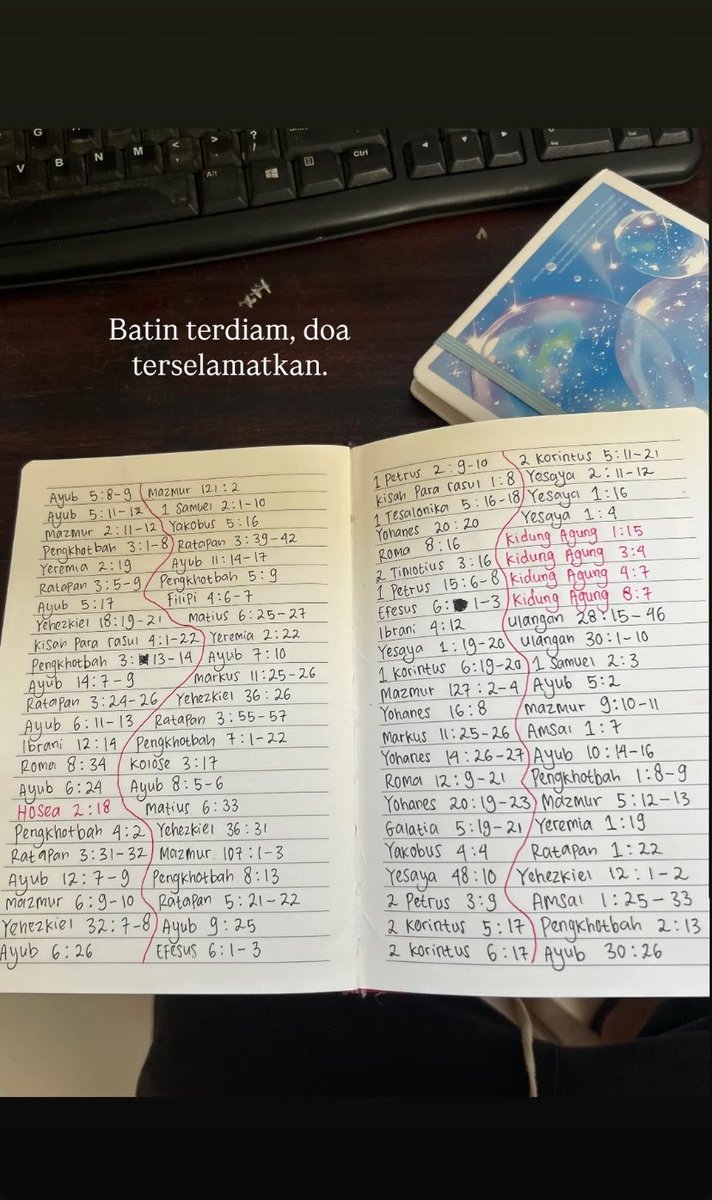 G
V
B
N
M
<
,
>
.
?
/
Alt
Ctrl
Batin terdiam, doa
terselamatkan.
Ayub 5:8-9
Ayub 5:11-12
Mazmur 2:11-12
Pengkhotbah 3:1-8
Yeremia 2:19
Ratapan 3:5-9
Ayub 5:17
Yehezkiel 18:19-21
Kisah Para rasul 4:1-22
Pengkhotbah 3: 13-14
Ayub 14:7-9
Ratapan 3:24-26
Ayub 6:11-13
Ibrani 12:14
Roma 8:34
Ayub 6:24
Hosea 2:18
Pengkhotbah 4:2
Ratapan 3:31-32
Ayub 12:7-9
Mazmur 6:9-10
Yehezkiel 32:7-8
Ayub 6:26
Mazmur 121:2
1 Samuel 2:1-10
Yakobus 5:16
Ratapan 3:39-42
Ayub 11:14-17
Pengkhotbah 5:9
Filipi 4:6-7
Matius 6:25-27
Yeremia 2:22
Ayub 7:10
Markus 11:25-26
Yehezkiel 36:26
Ratapan 3:55-57
Pengkhotbah 7:1-22
Kolose 3:17
Ayub 8:5-6
Matius 6:33
Yehezkiel 36:31
Mazmur 107:1-3
Pengkhotbah 8:13
Ratapan 5:21-22
Ayub 9:25
Efesus 6:1-3
1 Petrus 2:9-10
Kisah Para rasul 1:8
1 Tesalonika 5:16-18
Yohanes 20:20
Roma 8:16
2 Timotius 3:16
1 Petrus 15:6-8
Efesus 6: 1-3
Ibrani 4:12
Yesaya 1:19-20
1 Korintus 6:19-20
Mazmur 127:2-4
Yohanes 16:8
Markus 11:25-26
Yohanes 14:26-27
Roma 12:9-21
Yohanes 20:19-23
Galatia 5:19-21
Yakobus 4:4
Yesaya 48:10
2 Petrus 3:9
2 Korintus 5:17
2 Korintus 6:17
2 Korintus 5:11-21
Yesaya 2:11-12
Yesaya 1:16
Yesaya 1:4
Kidung Agung 1:15
Kidung Agung 3:4
Kidung Agung 4:7
Kidung Agung 8:7
Ulangan 28:15-46
Ulangan 30:1-10
1 Samuel 2:3
Ayub 5:2
Mazmur 9:10-11
Amsal 1:7
Ayub 10:14-16
Pengkhotbah 1:8-9
Mazmur 5:12-13
Yeremia 1:19
Ratapan 1:22
Yehezkiel 12:1-2
Amsal 1:25-33
Pengkhotbah 2:13
Ayub 30:26